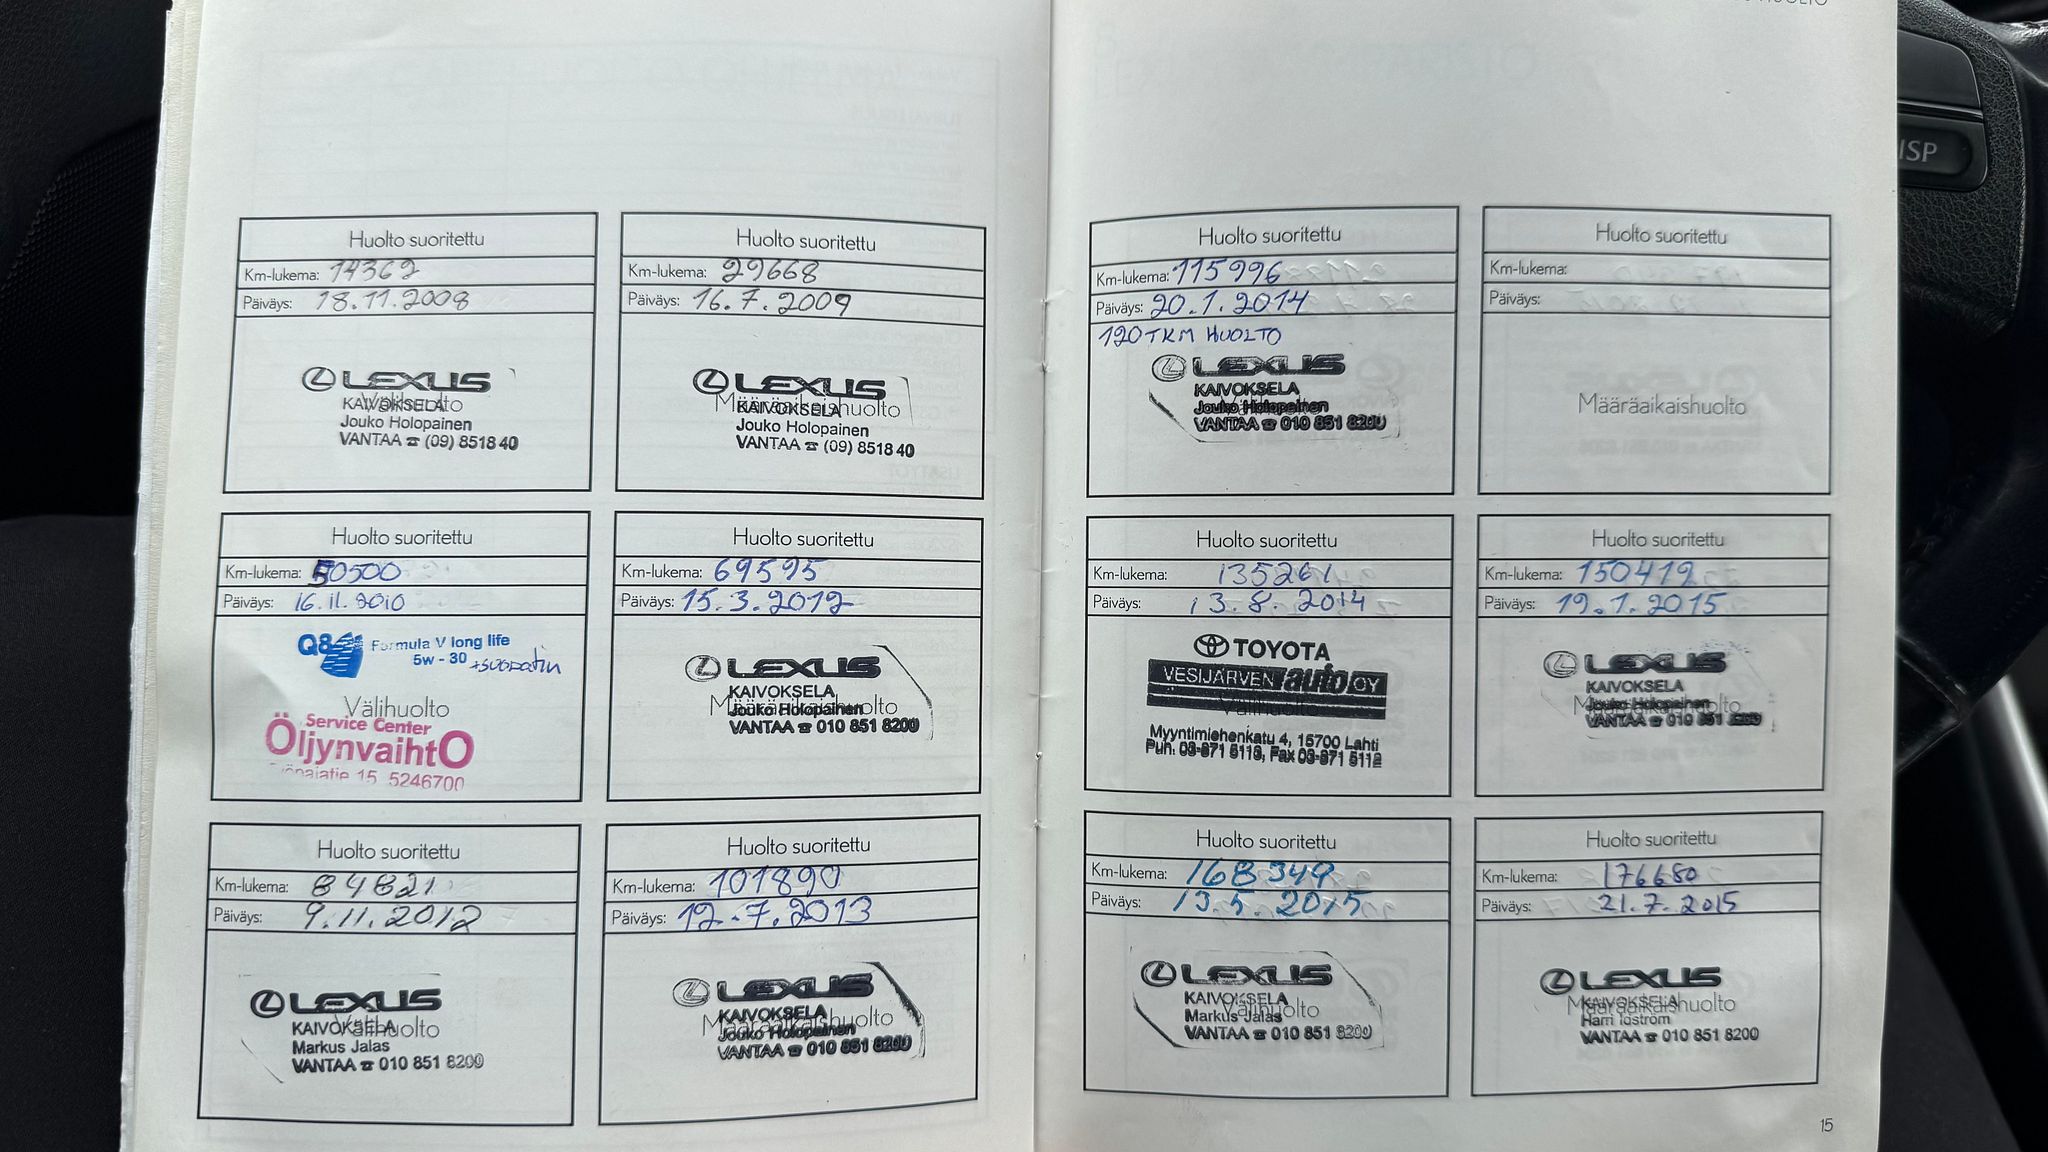 HUOLTO
ISP
Huolto suoritettu
Km-lukema: 14362
Päiväys: 18.11.2008
LEXUS
KAIVOKSELA
Välihuolto
Jouko Holopainen
VANTAA ☎ (09) 8518 40
Huolto suoritettu
Km-lukema: 29668
Päiväys: 16.7.2009
LEXUS
KAIVOKSELA
Määräaikaishuolto
Jouko Holopainen
VANTAA ☎ (09) 8518 40
Huolto suoritettu
Km-lukema: 50500
Päiväys: 16.11.2010
Q8 Formula V long life
5w - 30 +suodatin
Välihuolto
Service Center
ÖljynvaihtO
15 5246700
Huolto suoritettu
Km-lukema: 69595
Päiväys: 15.3.2012
LEXUS
KAIVOKSELA
Määräaikaishuolto
Jouko Holopainen
VANTAA ☎ 010 851 8200
Huolto suoritettu
Km-lukema: 84821
Päiväys: 9.11.2012
LEXUS
KAIVOKSELA
Välihuolto
Markus Jalas
VANTAA ☎ 010 851 8200
Huolto suoritettu
Km-lukema: 101890
Päiväys: 12.7.2013
LEXUS
KAIVOKSELA
Määräaikaishuolto
Jouko Holopainen
VANTAA ☎ 010 851 8200
Huolto suoritettu
Km-lukema: 115996
Päiväys: 20.1.2014
120 TKM HUOLTO
LEXUS
KAIVOKSELA
Jouko Holopainen
VANTAA ☎ 010 851 8200
Huolto suoritettu
Km-lukema:
Päiväys:
Määräaikaishuolto
Huolto suoritettu
Km-lukema: 135261
Päiväys: 13.8.2014
TOYOTA
VESIJÄRVEN auto OY
Välihuolto
Myyntimiehenkatu 4, 15700 Lahti
Puh. 03-871 5113, Fax 03-871 5112
Huolto suoritettu
Km-lukema: 150419
Päiväys: 19.1.2015
LEXUS
KAIVOKSELA
Määräaikaishuolto
Jouko Holopainen
VANTAA ☎ 010 851 8200
Huolto suoritettu
Km-lukema: 168349
Päiväys: 13.5.2015
LEXUS
KAIVOKSELA
Välihuolto
Markus Jalas
VANTAA ☎ 010 851 8200
Huolto suoritettu
Km-lukema: 176680
Päiväys: 21.7.2015
LEXUS
KAIVOKSELA
Määräaikaishuolto
Harri
VANTAA ☎ 010 851 8200
15